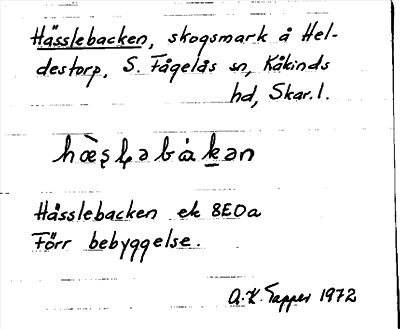 Hässlebacken, skogsmark å Hel-
destorp, S. Fågelås sn, Kåkinds
hd, Skar. l.
hæ̀ʂḷəbåkən
Hässlebacken ek 8E0a
Förr bebyggelse.
A.K. Tapper 1972